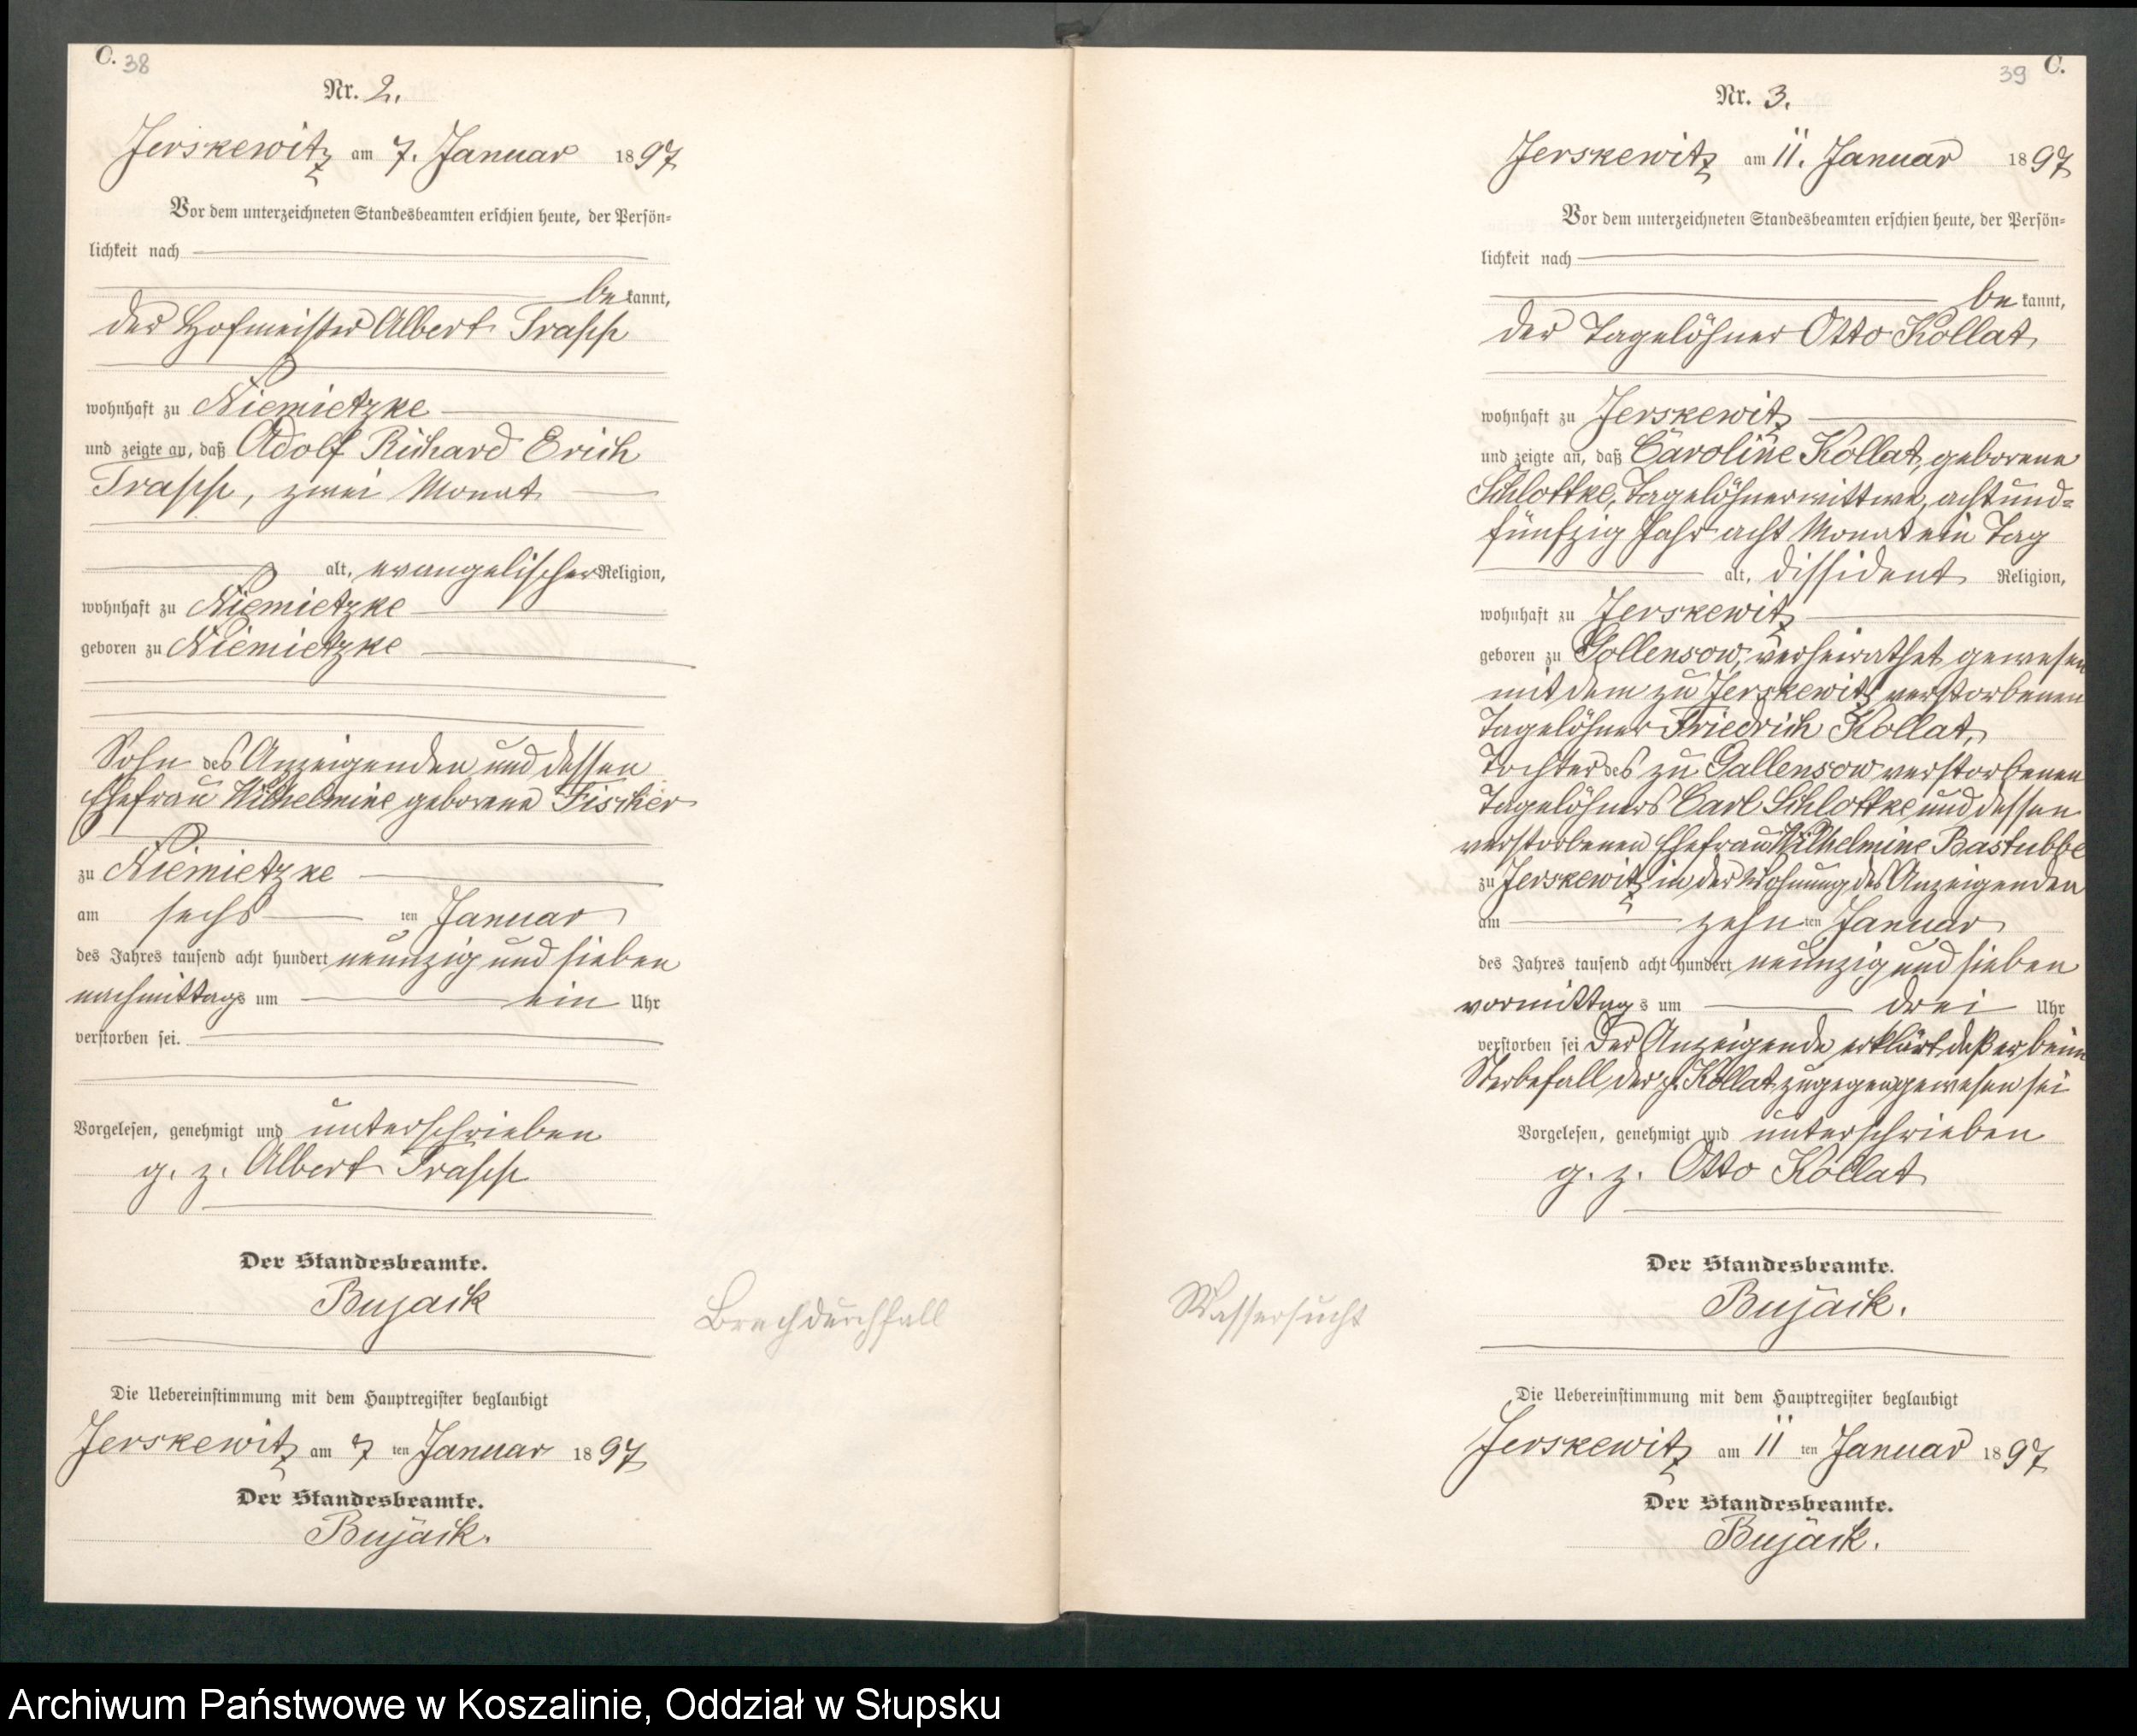 C. 38
Nr. 2.
Jerskewitz am 7. Januar 1897
Vor dem unterzeichneten Standesbeamten erschien heute, der Persön=
lichkeit nach
be kannt,
der Hofmeister Albert Trapp
wohnhaft zu Niemietzke
und zeigte an, daß Adolf Richard Erich
Trapp, zwei Monat
alt, evangelischer Religion,
wohnhaft zu Niemietzke
geboren zu Niemietzke
Sohn des Anzeigenden und dessen
Ehefrau Wilhelmine geborene Fischer
zu Niemietzke
am sechs ten Januar
des Jahres tausend acht hundert neunzig und sieben
nachmittags um ein Uhr
verstorben sei.
Vorgelesen, genehmigt und unterschrieben
g. z. Albert Trapp
Der Standesbeamte.
Bujack
Brechdurchfall
Die Uebereinstimmung mit dem Hauptregister beglaubigt
Jerskewitz am 7 ten Januar 1897
Der Standesbeamte.
Bujack.
39 C.
Nr. 3.
Jerskewitz am 11. Januar 1897
Vor dem unterzeichneten Standesbeamten erschien heute, der Persön=
lichkeit nach
be kannt,
der Tagelöhner Otto Kollat
wohnhaft zu Jerskewitz
und zeigte an, daß Caroline Kollat, geborene
Schlottke, Tagelöhnerwittwe, achtund=
fünfzig Jahr acht Monat ein Tag
alt, dissident Religion,
wohnhaft zu Jerskewitz
geboren zu Gollensow, verheirathet gewesen
mit dem zu Jerskewitz verstorbenen
Tagelöhner Friedrich Kollat,
Tochter des zu Gallensow verstorbenen
Tagelöhners Carl Schlottke und dessen
verstorbenen Ehefrau Wilhelmine Bastubbe
zu Jerskewitz in der Wohnung des Anzeigenden
am zehn ten Januar
des Jahres tausend acht hundert neunzig und sieben
vormittags um drei Uhr
verstorben sei Der Anzeigende erklärt, daß er beim
Sterbefall der p. Kollat zugegen gewesen sei
Vorgelesen, genehmigt und unterschrieben
g. z. Otto Kollat
Der Standesbeamte.
Bujack.
Wassersucht
Die Uebereinstimmung mit dem Hauptregister beglaubigt
Jerskewitz am 11 ten Januar 1897
Der Standesbeamte.
Bujack.
Archiwum Państwowe w Koszalinie, Oddział w Słupsku